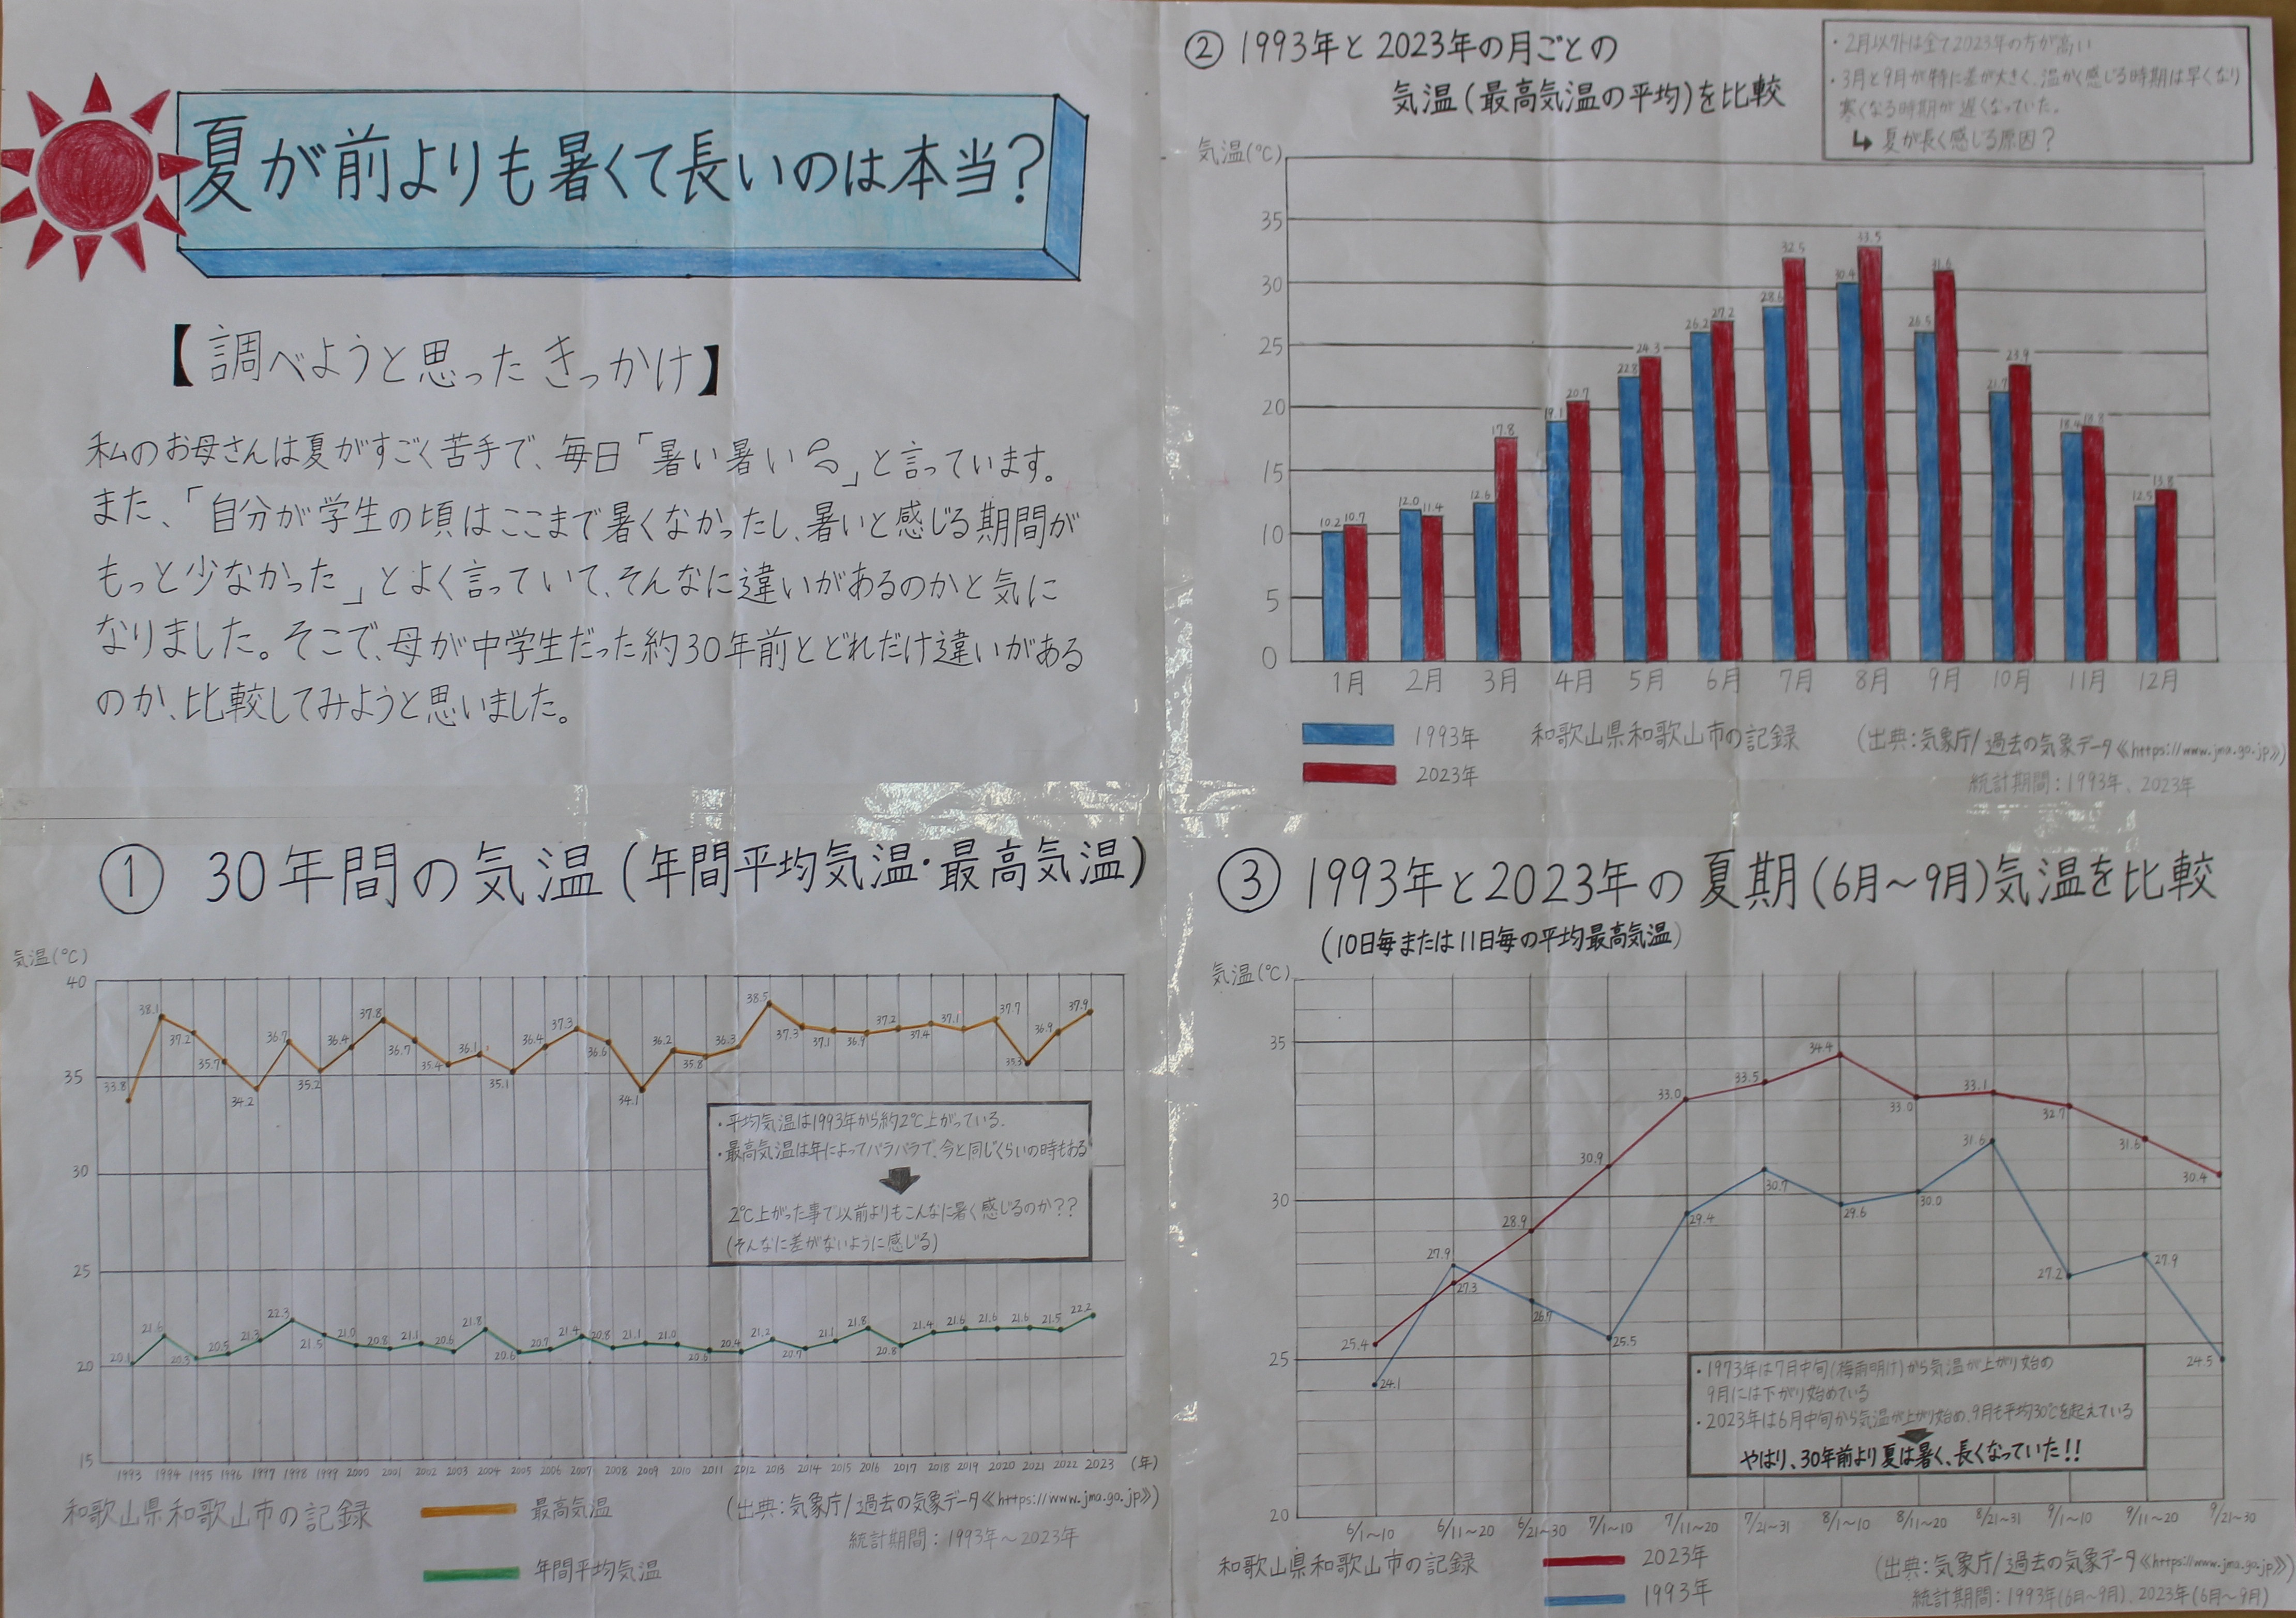 夏が前よりも暑くて長いのは本当?
【調べようと思ったきっかけ】
私のお母さんは夏がすごく苦手で、毎日「暑い暑い」と言っています。
また、「自分が学生の頃はここまで暑くなかったし、暑いと感じる期間が
もっと少なかった」とよく言っていて、そんなに違いがあるのかと気に
なりました。そこで、母が中学生だった約30年前とどれだけ違いがある
のか、比較してみようと思いました。
① 30年間の気温(年間平均気温・最高気温)
気温(℃)
40
35
30
25
20
15
33.8 38.1 37.2 35.7 34.2 36.7 35.2 36.4 37.8 36.7 35.4 36.1 35.1 36.4 37.3 36.6 34.1 36.2 35.8 36.3 38.5 37.3 37.1 36.9 37.2 37.4 37.1 37.7 35.3 36.9 37.9
・平均気温は1993年から約2℃上がっている.
・最高気温は年によってバラバラで、今と同じくらいの時もある
2℃上がった事で以前よりもこんなに暑く感じるのか??
(そんなに差がないように感じる)
20.1 21.6 20.3 20.5 21.3 22.3 21.5 21.0 20.8 21.1 20.6 21.8 20.6 20.7 21.4 20.8 21.1 21.0 20.6 20.4 21.2 20.7 21.1 21.8 20.8 21.4 21.6 21.6 21.6 21.5 22.2
1993 1994 1995 1996 1997 1998 1999 2000 2001 2002 2003 2004 2005 2006 2007 2008 2009 2010 2011 2012 2013 2014 2015 2016 2017 2018 2019 2020 2021 2022 2023 (年)
和歌山県和歌山市の記録
最高気温
年間平均気温
(出典:気象庁/過去の気象データ《https://www.jma.go.jp》)
統計期間:1993年~2023年
② 1993年と2023年の月ごとの
気温(最高気温の平均)を比較
・2月以外は全て2023年の方が高い
・3月と9月が特に差が大きく、温かく感じる時期は早くなり
寒くなる時期が遅くなっていた。
↳ 夏が長く感じる原因?
気温(℃)
35
30
25
20
15
10
5
0
10.2 10.7 12.0 11.4 12.6 17.8 19.1 20.7 22.8 24.3 26.2 27.2 28.6 32.5 30.4 33.5 26.5 31.6 21.7 23.9 18.4 18.8 12.5 13.8
1月 2月 3月 4月 5月 6月 7月 8月 9月 10月 11月 12月
1993年
2023年
和歌山県和歌山市の記録
(出典:気象庁/過去の気象データ《https://www.jma.go.jp》)
統計期間:1993年、2023年
③ 1993年と2023年の夏期(6月~9月)気温を比較
(10日毎または11日毎の平均最高気温)
気温(℃)
35
30
25
20
25.4 27.3 28.9 30.9 33.0 33.5 34.4 33.0 33.1 32.7 31.6 30.4
24.1 27.9 26.7 25.5 29.4 30.7 29.6 30.0 31.6 27.2 27.9 24.5
・1973年は7月中旬(梅雨明け)から気温が上がり始め
9月には下がり始めている
・2023年は6月中旬から気温が上がり始め、9月も平均30℃を起えている
やはり、30年前より夏は暑く、長くなっていた!!
6/1~10 6/11~20 6/21~30 7/1~10 7/11~20 7/21~31 8/1~10 8/11~20 8/21~31 9/1~10 9/11~20 9/21~30
和歌山県和歌山市の記録
2023年
1993年
(出典:気象庁/過去の気象データ《https://www.jma.go.jp》)
統計期間:1993年(6月~9月)、2023年(6月~9月)